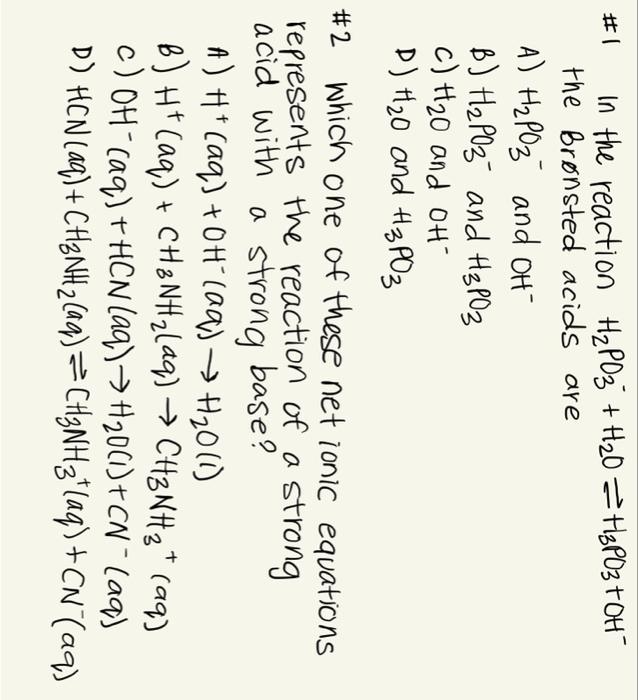 #1 In the reaction H₂PO₃⁻ + H₂O ⇌ H₃PO₃ + OH⁻
the Brønsted acids are
A) H₂PO₃⁻ and OH⁻
B) H₂PO₃⁻ and H₃PO₃
C) H₂O and OH⁻
D) H₂O and H₃PO₃
#2 which one of these net ionic equations
represents the reaction of a strong
acid with a strong base?
A) H⁺(aq) + OH⁻(aq) → H₂O(l)
B) H⁺(aq) + CH₃NH₂(aq) → CH₃NH₃⁺(aq)
C) OH⁻(aq) + HCN(aq) → H₂O(l) + CN⁻(aq)
D) HCN(aq) + CH₃NH₂(aq) ⇌ CH₃NH₃⁺(aq) + CN⁻(aq)